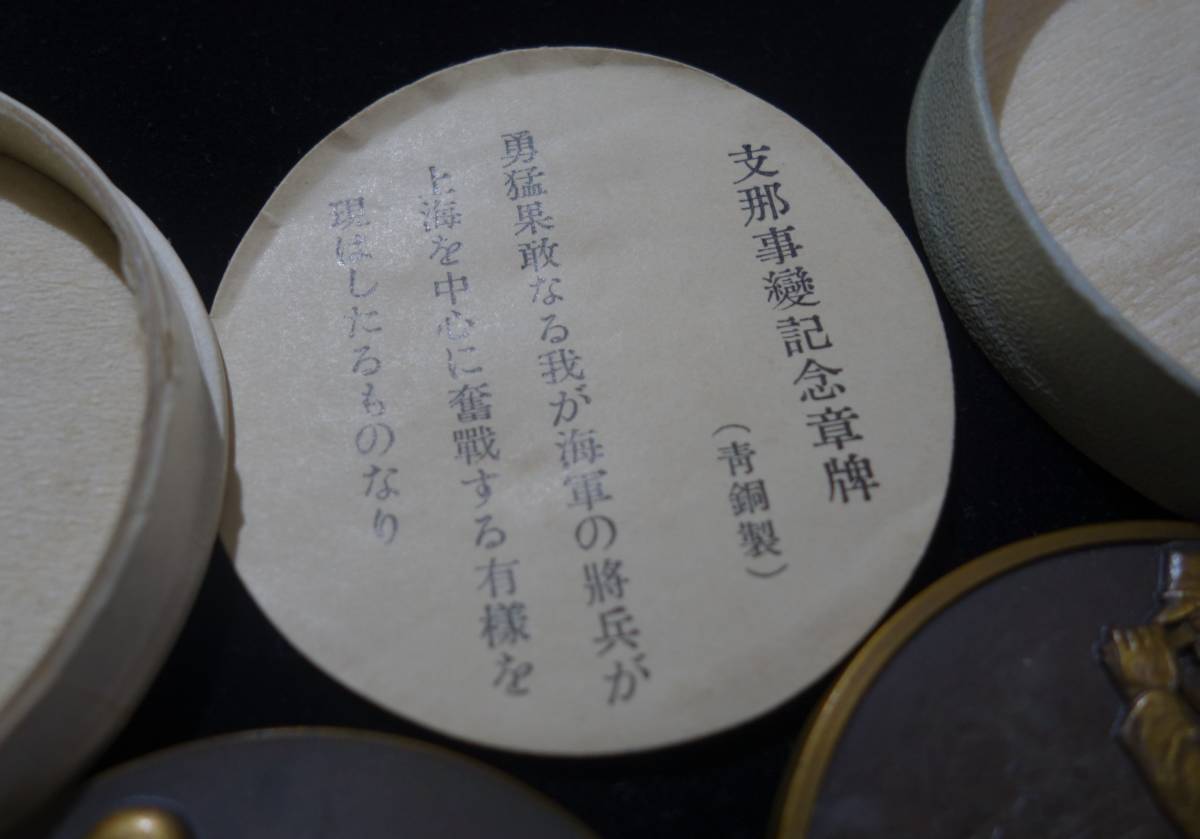 支那事變記念章牌
（靑銅製）
勇猛果敢なる我が海軍の將兵が
上海を中心に奮戰する有樣を
現はしたるものなり